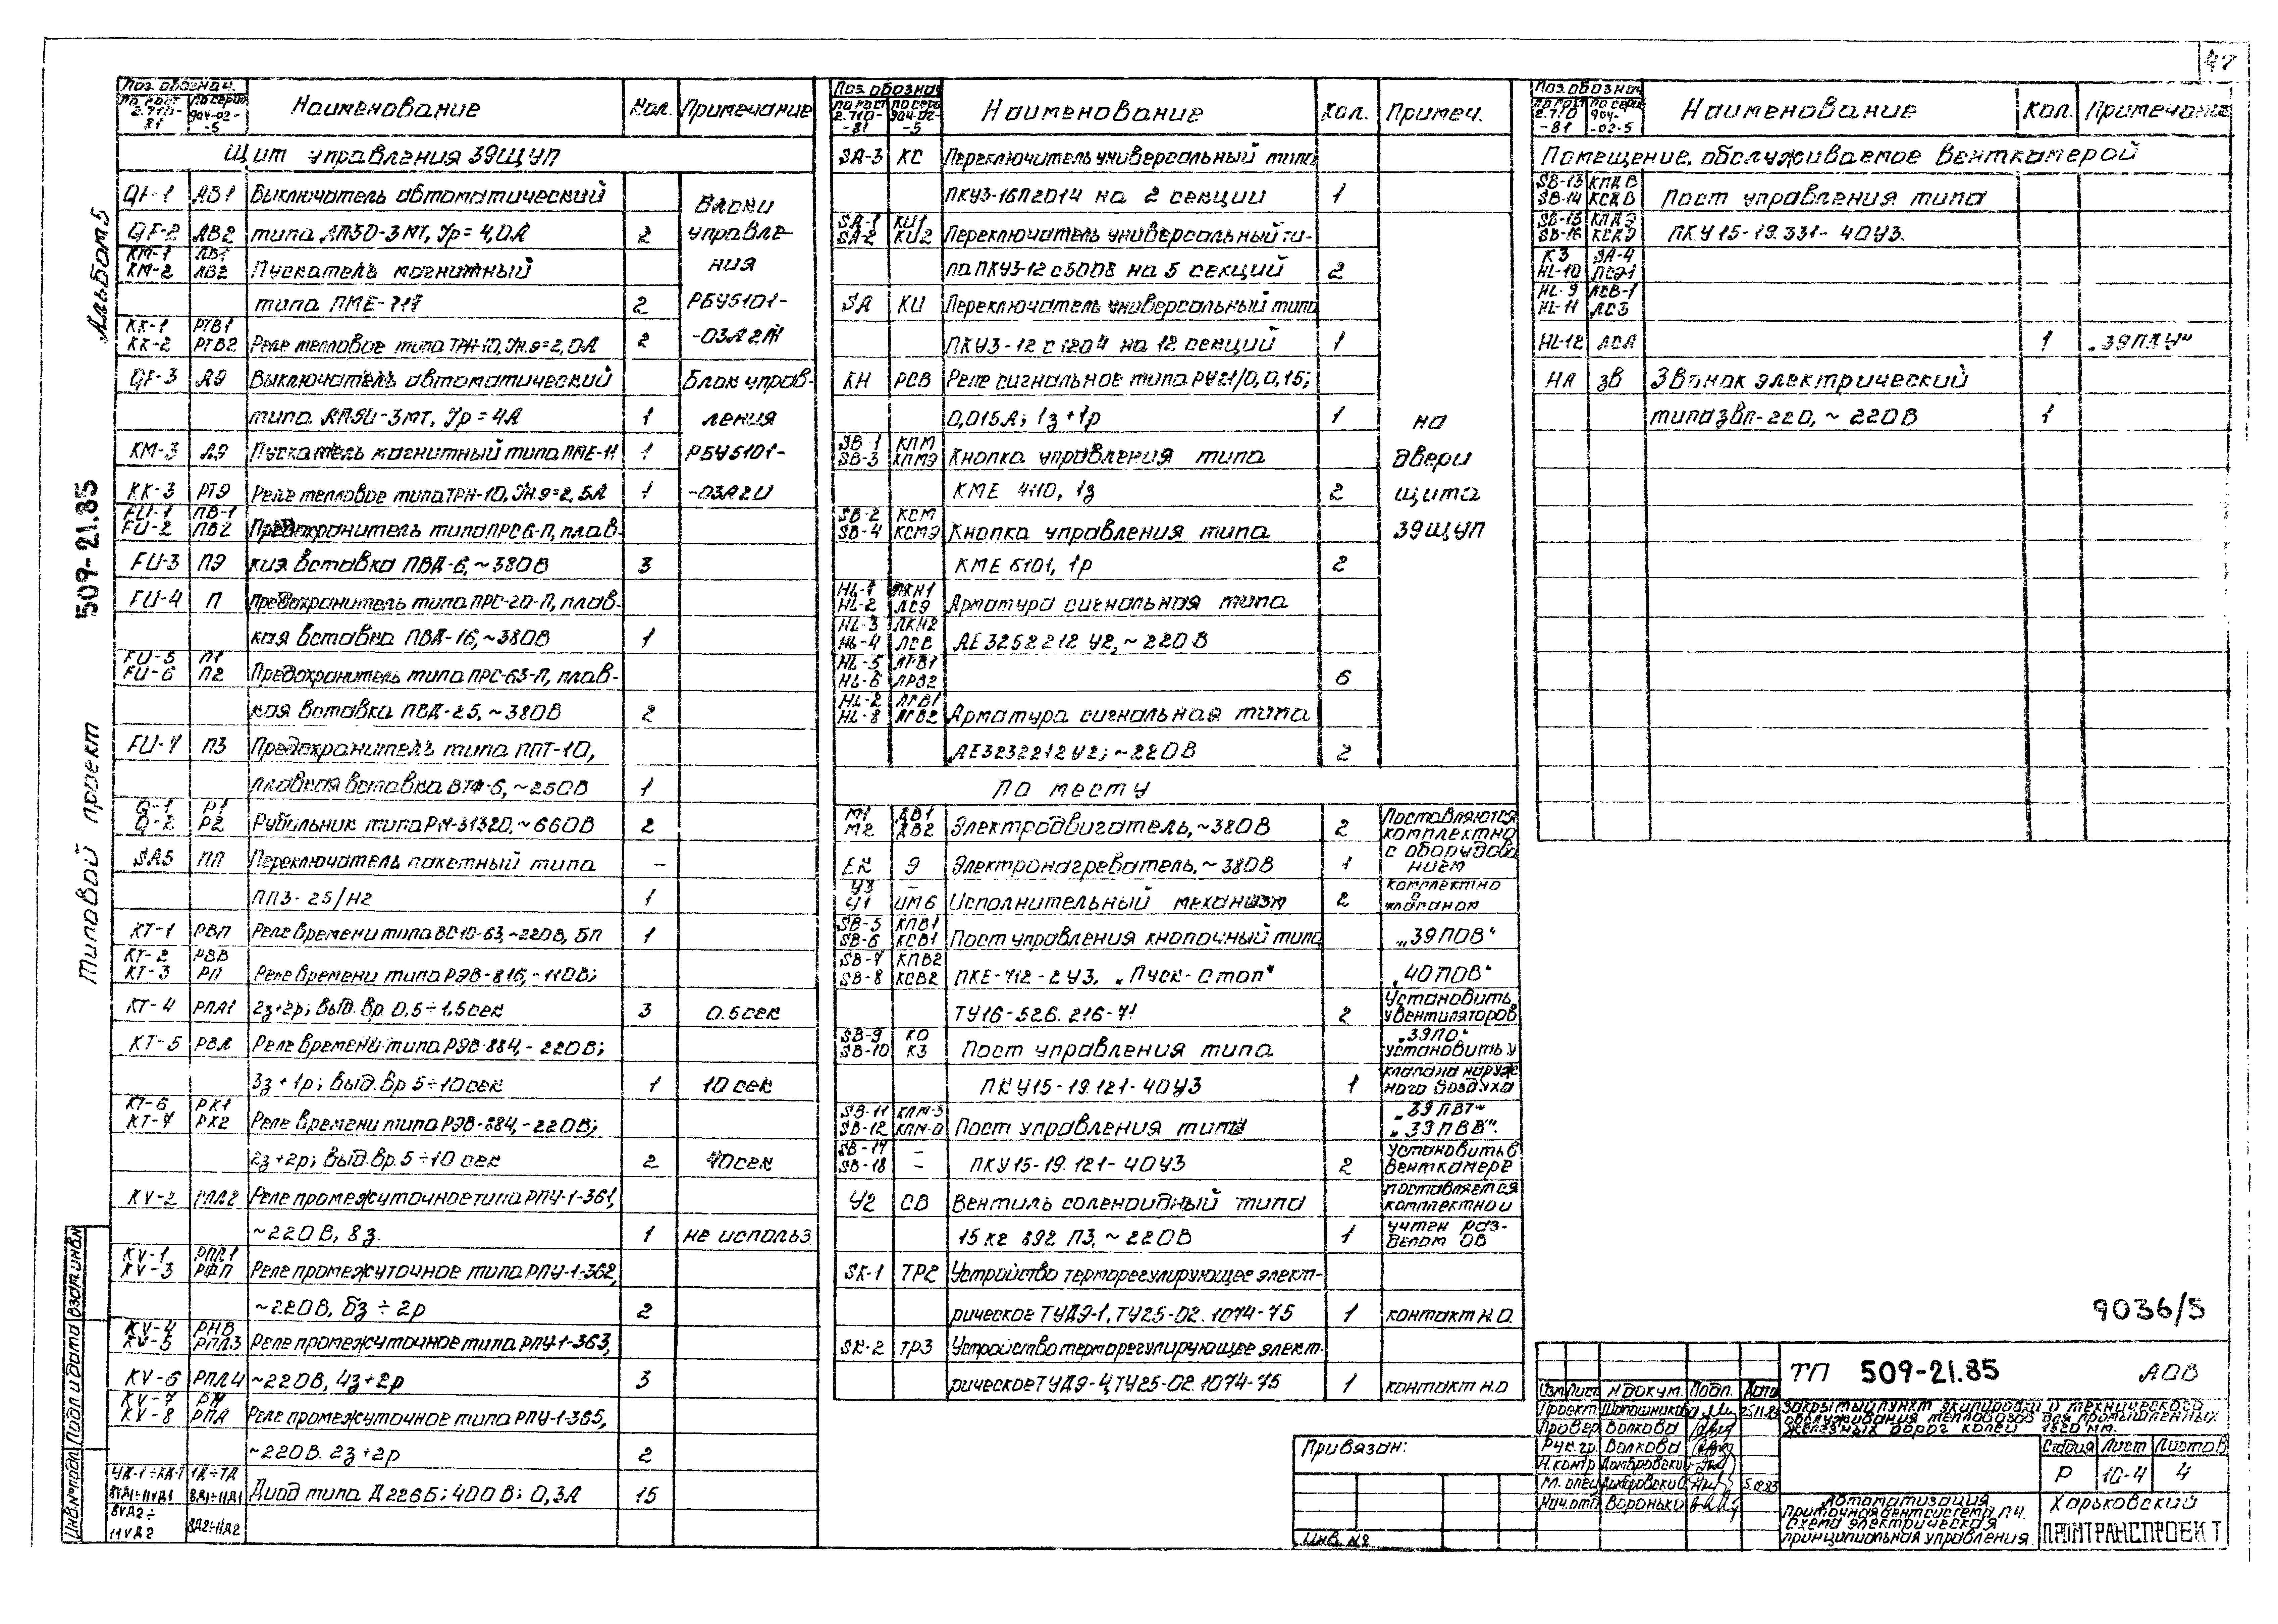 47
Альбом 5
509-21.85
Типовой проект
Поз. обознач.
по ГОСТ 2.710-81
по серии 904-02-5
Наименование
Кол.
Примечание
Щит управления 39ЩУП
QF-1 АВ1 Выключатель автоматический Блоки
QF-2 АВ2 типа АП50-3МТ, Iр=4,0А 2 управле-
KM-1
KM-2 ЛВ2 Пускатель магнитный ния
типа ПМЕ-717 2 РБУ5101-
KK-1 РТВ1
KK-2 РТВ2 Реле тепловое типа ТРН-10, Iн.э=2,0А 2 -03А2И
QF-3 АЭ Выключатель автоматический Блок управ-
типа АП50-3МТ, Iр=4А 1 ления
KM-3 ЛЭ Пускатель магнитный типа ПМЕ-11 1 РБУ5101-
KK-3 РТЭ Реле тепловое типа ТРН-10, Iн.э=2,5А 1 -03А2И
FU-1 ПВ-1
FU-2 ПВ2 Предохранитель типа ПРС6-П, плав-
FU-3 ПЭ кая вставка ПВД-6, ~380В 3
FU-4 П Предохранитель типа ПРС-20-П, плав-
кая вставка ПВД-16, ~380В 1
FU-5 П1
FU-6 П2 Предохранитель типа ПРС-63-П, плав-
кая вставка ПВД-25, ~380В 2
FU-7 П3 Предохранитель типа ППТ-10,
плавкая вставка ВТФ-6, ~250В 1
Q-1 Р1
Q-2 Р2 Рубильник типа РМ-31320, ~660В 2
SA5 ПП Переключатель пакетный типа –
ПП3-25/Н2 1
KT-1 РВП Реле времени типа ВС10-63, ~220В, БП 1
KT-2 РВВ
KT-3 РП Реле времени типа РЭВ-816, -110В;
KT-4 РПА1 2з+2р; Выд. вр. 0,5÷1,5сек 3 0.5сек
KT-5 РВА Реле времени типа РЭВ-884, -220В;
3з+1р; Выд. вр 5÷10сек 1 10 сек
KT-6 РК1
KT-7 РК2 Реле времени типа РЭВ-884, -220В;
2з+2р; Выд. вр. 5÷10 сек 2 10сек
KV-2 РПА2 Реле промежуточное типа РПУ-1-361,
~220В, 8з. 1 не использ.
KV-1 РПД1
KV-3 РФП Реле промежуточное типа РПУ-1-362,
~220В, 6з÷2р 2
KV-4 РНВ
KV-5 РПД3 Реле промежуточное типа РПУ-1-363,
KV-6 РПД4 ~220В, 4з+2р 3
KV-7 РМ
KV-8 РПА Реле промежуточное типа РПУ-1-365,
~220В. 2з+2р 2
1Д÷7Д
8VД1÷11VД1 8Д1÷11Д1 Диод типа Д226Б; 400В; 0,3А 15
8VД2÷
11VД2 8Д2÷11Д2
Поз. обознач.
по ГОСТ 2.710-81
по серии 904-02-5
Наименование
Кол.
Примеч.
SA-3 КС Переключатель универсальный типа
ПКУ3-16П2014 на 2 секции 1
SA-1 КИ1
SA-2 КИ2 Переключатель универсальный ти-
па ПКУ3-12с5008 на 5 секций 2
SA КИ Переключатель универсальный типа
ПКУ3-12с1204 на 12 секций 1
KH РСВ Реле сигнальное типа РУ21/0,0,15;
0,015А; 1з+1р 1 на
SB-1 КПМ
SB-3 КПМЭ Кнопка управления типа двери
КМЕ 4110, 1з 2 щита
SB-2 КСМ
SB-4 КСМЭ Кнопка управления типа 39ЩУП
КМЕ 5101, 1р 2
HL-1 ЛКН1
HL-2 ЛСЭ Арматура сигнальная типа
HL-3 ЛКН2
HL-4 ЛСВ АЕ3252212У2, ~220В
HL-5 ЛРВ1
HL-6 ЛРВ2 6
HL-2 ЛГВ1
HL-8 ЛГВ2 Арматура сигнальная типа
АЕ3232212У2; ~220В 2
По месту
M1 ДВ1 Поставляются
M2 ДВ2 Электродвигатель, ~380В 2 комплектно
с оборудова
EK Э Электронагреватель, ~380В 1 нием
У3 – комплектно
У1 ИМ6 Исполнительный механизм 2 с клапаном
SB-5 КПВ1
SB-6 КСВ1 Пост управления кнопочный типа „39ПОВ“
SB-7 КПВ2
SB-8 КСВ2 ПКЕ-712-2У3, „Пуск-Стоп“ „40ПОВ“
Установить
ТУ16-526.216-71 2 у вентиляторов
SB-9 КО „39ПО“
SB-10 КЗ Пост управления типа установить у
клапана наруж
ПКУ15-19.121-40У3 1 ного воздуха
SB-11 КПМ-З „39ПВТ“
SB-12 КПМ-О Пост управления типа „39ПВВ“.
SB-17 – установить в
SB-18 – ПКУ15-19.121-40У3 2 венткамере
поставляется
У2 СВ Вентиль соленоидный типа комплектно и
учтен раз-
15кг 892 П3, ~220В 1 делом ОВ
SK-1 ТР2 Устройство терморегулирующее элект-
рическое ТУДЭ-1, ТУ25-02.1074-75 1 контакт н.о.
SK-2 ТР3 Устройство терморегулирующее элект-
рическое ТУДЭ-4, ТУ25-02.1074-75 1 контакт н.о
Поз. обознач.
по ГОСТ 2.710-81
по серии 904-02-5
Наименование
Кол.
Примечание
Помещение, обслуживаемое венткамерой
SB-13 КПДВ
SB-14 КСДВ Пост управления типа
SB-15 КПДЭ
SB-16 КСДЭ ПКУ15-19.331-40У3.
КЗ SA-4
HL-10 ЛСЭ-1
HL-9 ЛСВ-1
HL-11 ЛСЗ
HL-12 ЛСА 1 „39ПДУ“
HA ЗВ Звонок электрический
типа ЗВП-220, ~220В 1
9036/5
Привязан:
Инв. №
ТП 509-21.85 АОВ
Изм Лист №докум. Подп. Дата
Проект. Шапошникова 25.11.83
Провер Волкова
Рук.гр. Волкова
Н.контр Домбровский
Гл. спец Домбровский 5.12.83
Нач.отд Воронько
Закрытый пункт экипировки и технического
обслуживания тепловозов для промышленных
железных дорог колеи 1520 мм.
Стадия Лист Листов
Р 10-4 4
Автоматизация
Приточная вентсистема П4.
Схема электрическая
принципиальная управления
Харьковский
ПРОМТРАНСПРОЕКТ
Инв.№подл. Подп. и дата Взам.инв.№